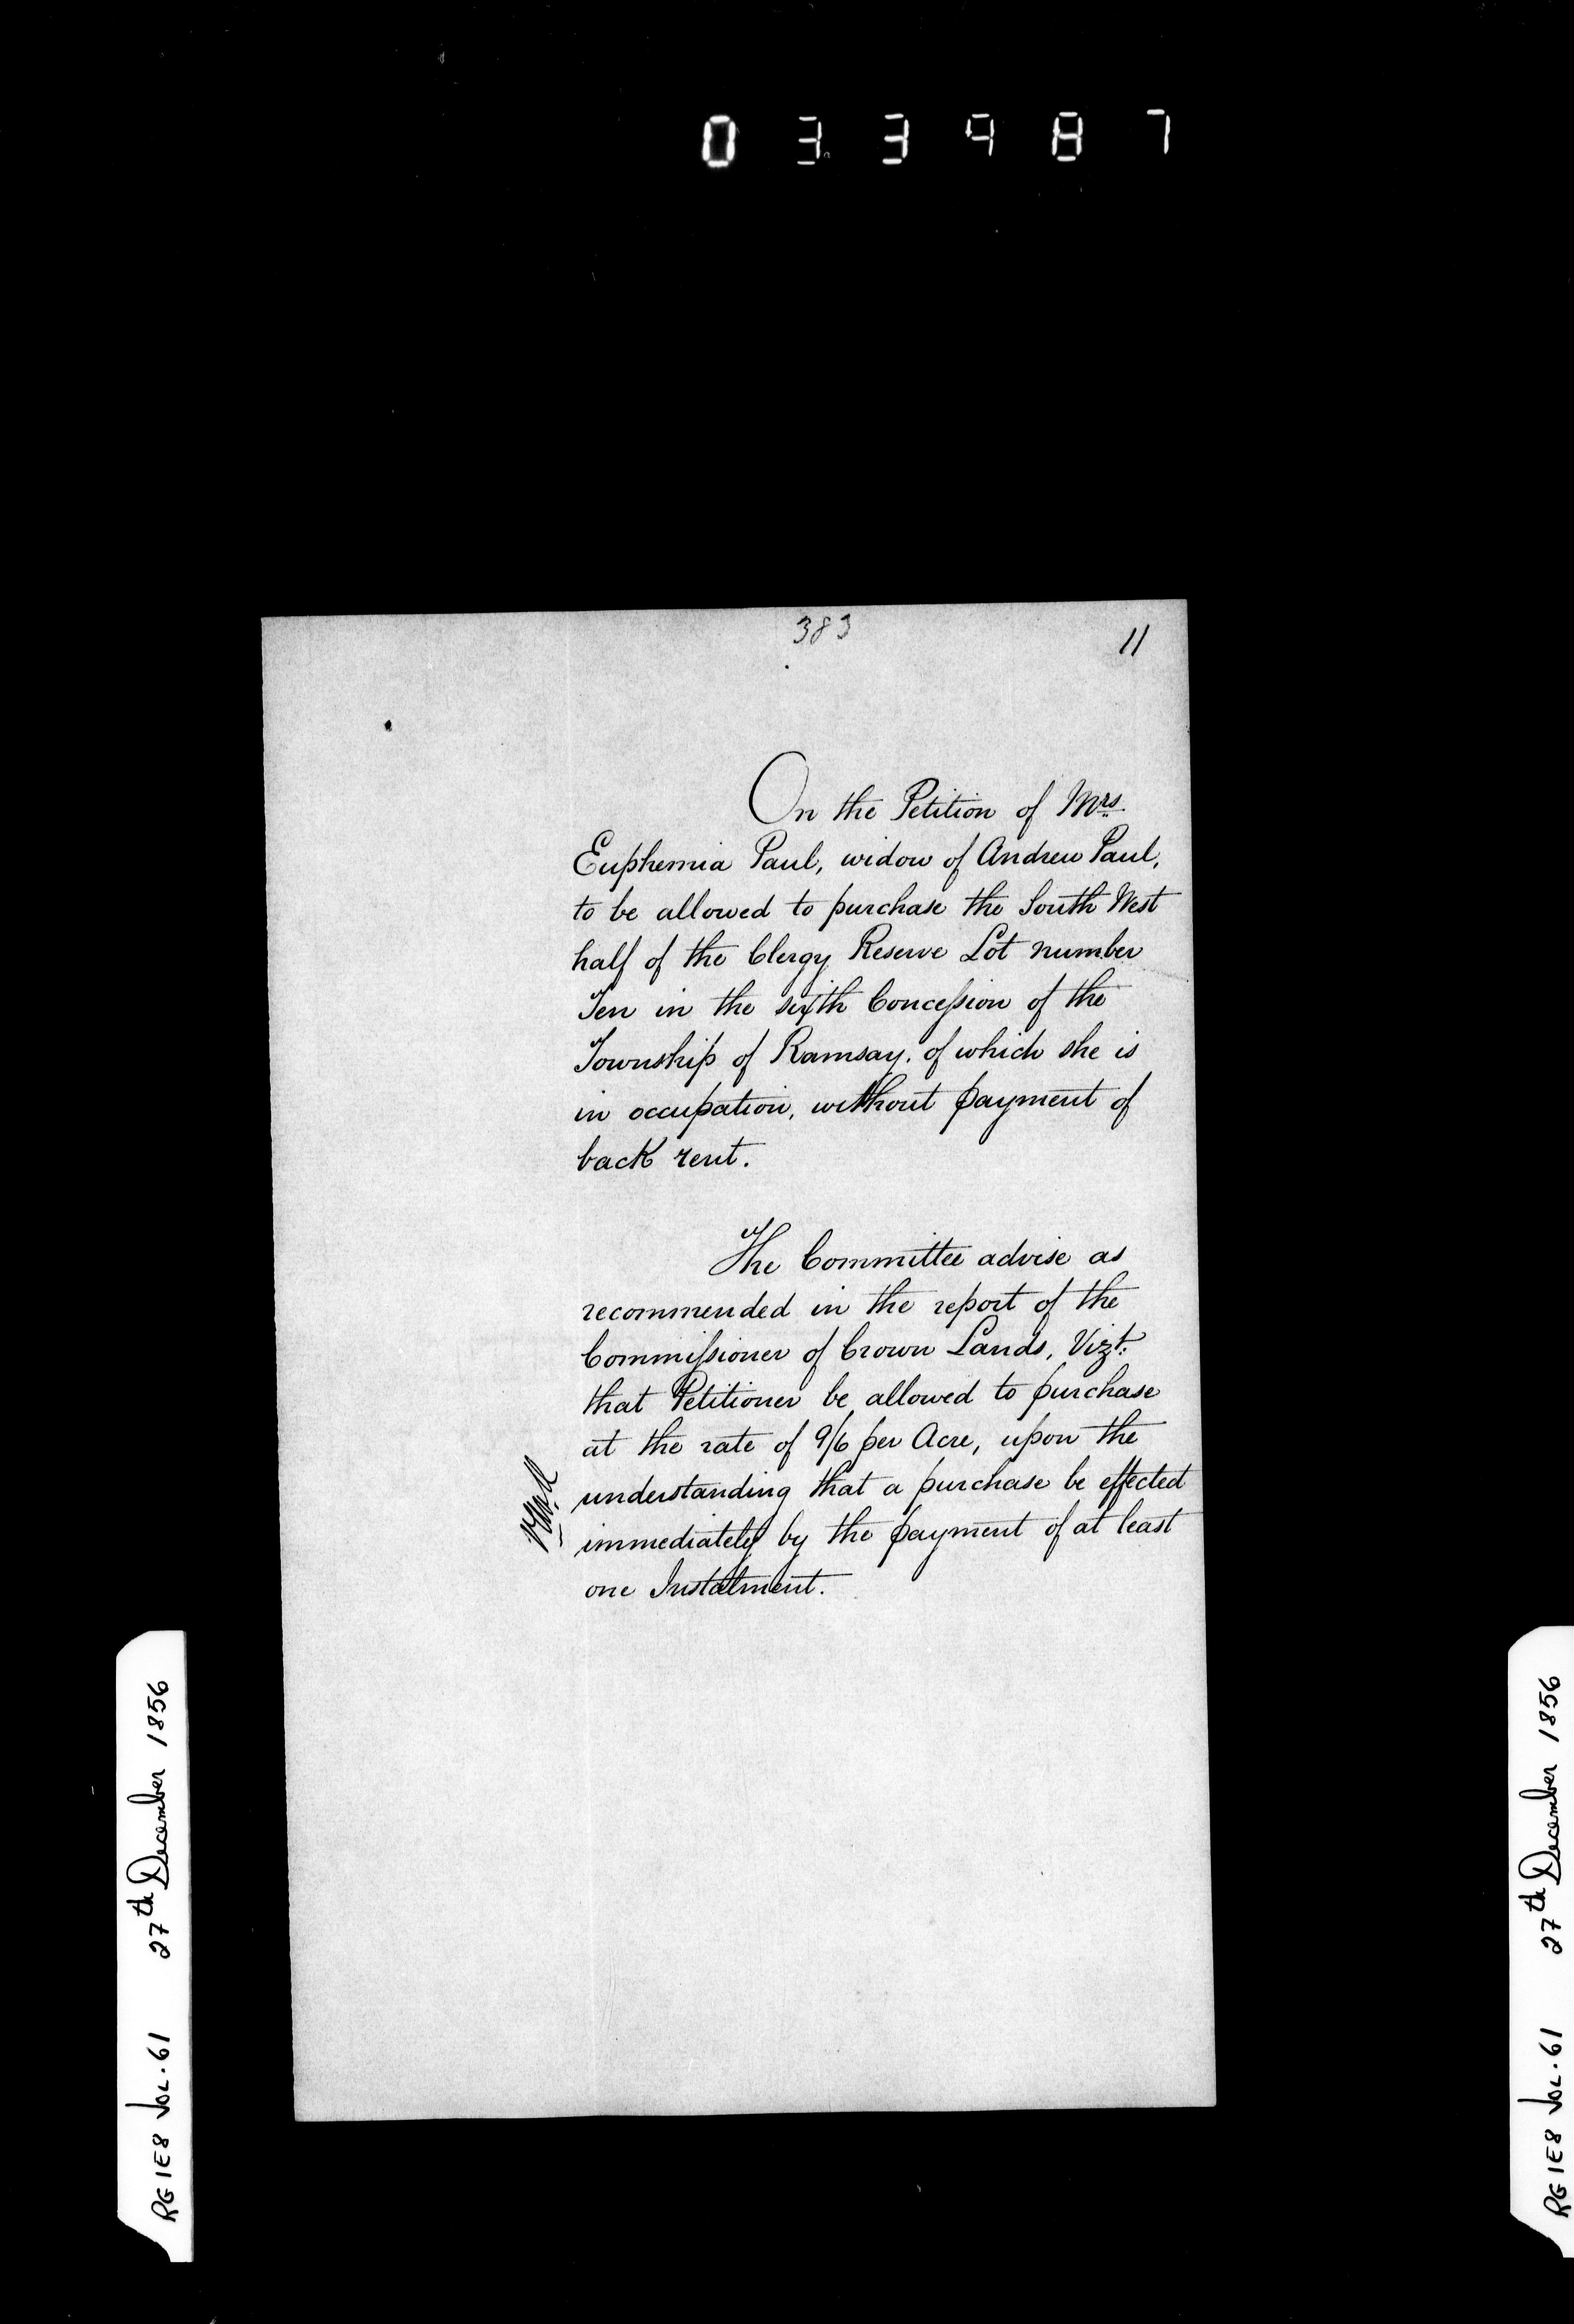 033987
383
11
On the Petition of Mrs.
Euphemia Paul, widow of Andrew Paul,
to be allowed to purchase the South West
half of the Clergy Reserve Lot number
Ten in the sixth Concession of the
Township of Ramsay, of which she is
in occupation, without payment of
back rent.
The Committee advise as
recommended in the report of the
Commissioner of Crown Lands, Vizt:
that Petitioner be allowed to purchase
at the rate of 9/6 per Acre, upon the
understanding that a purchase be effected
immediately by the payment of at least
one Instalment.
RG 1E8 VOL. 61 27th December 1856
RG 1E8 VOL. 61 27th December 1856